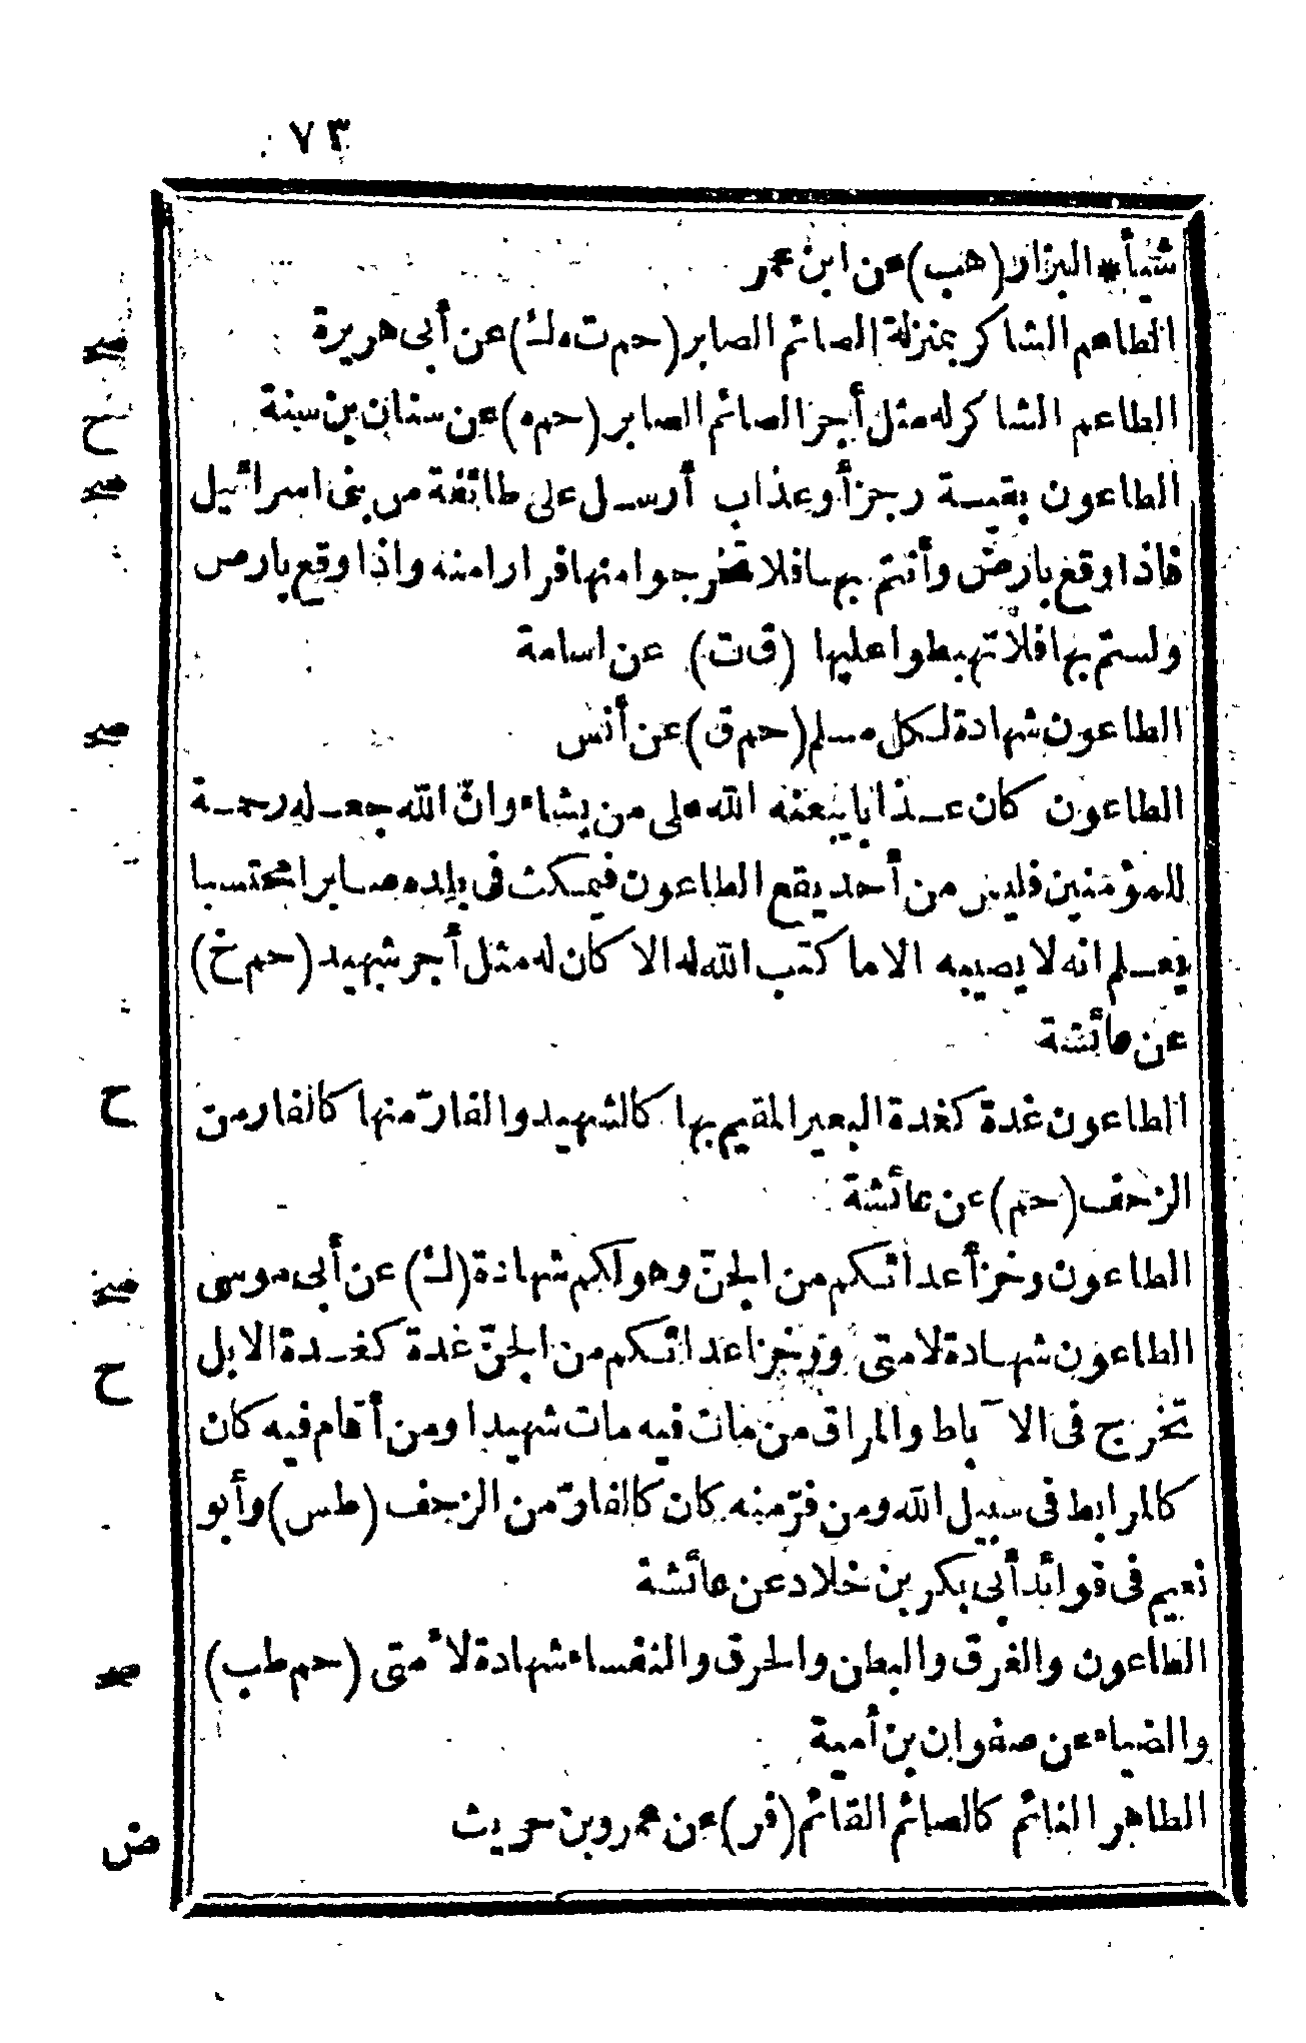 ٧٣
شيأ * البزار (هب) عن ابن عمر
صح الطاعم الشاكر بمنزلة الصائم الصابر (حم ت ه ك) عن أبى هريرة
ح الطاعم الشاكر له مثل أجر الصائم الصابر (حم ه) عن سنان بن سنة
صح الطاعون بقيـة رجز أو عذاب أرسـل على طائفة من بنى اسرائيل
فاذا وقع بارض وأنتم بهـا فلا تخرجوا منها فرارا منه واذا وقع بارض
ولستم بها فلا تهبطوا عليها (ق ت) عن اسامة
صح الطاعون شهادة لكل مسلم (حم ق) عن أنس
الطاعون كان عـذابا يبعثه الله على من يشاء وانّ الله جعـله رحمـة
للمؤمنين فليس من أحد يقع الطاعون فيمكث فى بلده صـابرا محتسبا
يعـلم انه لا يصيبه الا ما كتب الله له الا كان له مثل أجر شهيد (حم خ)
عن عائشة
ح الطاعون غدة كغدة البعير المقيم بها كالشهيد والفارّ منها كالفار من
الزحف (حم) عن عائشة
صح الطاعون وخز أعدائكم من الجنّ وهو لكم شهادة (ك) عن أبى موسى
ح الطاعون شهـادة لامتى ووخز اعدائكم من الجنّ غدة كغـدة الابل
تخرج فى الآباط والمراق من مات فيه مات شهيدا ومن أقام فيه كان
كالمرابط فى سبيل الله ومن فرّ منه كان كالفارّ من الزحف (طس) وأبو
نعيم فى فوائد أبى بكر بن خلاد عن عائشة
صح الطاعون والغرق والبطن والحرق والنفساء شهادة لأمتى (حم طب)
والضياء عن صفوان بن أمية
ض الطاهر النائم كالصائم القائم (فر) عن عمرو بن حريث